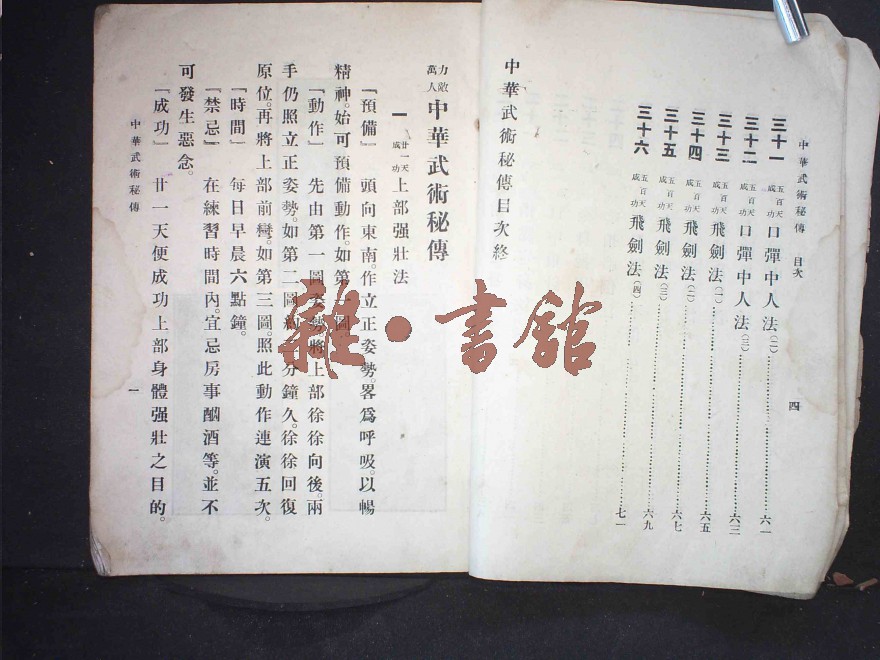 中華武術秘傳 目次 四
三十一 五百天成功 口彈中人法(二)……六一
三十二 五百天成功 口彈中人法(三)……六三
三十三 五百天成功 飛劍法(一)……六五
三十四 五百天成功 飛劍法(二)……六七
三十五 五百天成功 飛劍法(三)……六九
三十六 五百天成功 飛劍法(四)……七一
中華武術秘傳目次終
力敵萬人 中華武術秘傳
一 廿一天成功 上部强壯法
『預備』 頭向東南。作立正姿勢。畧爲呼吸。以暢
精神。始可預備動作。如第一圖。
『動作』 先由第一圖姿勢將上部徐徐向後。兩
手仍照立正姿勢。如第二圖約一分鐘久。徐徐回復
原位。再將上部前彎。如第三圖。照此動作連演五次。
『時間』 每日早晨六點鐘。
『禁忌』 在練習時間內。宜忌房事酗酒等。並不
可發生惡念。
『成功』 廿一天便成功上部身體强壯之目的。
中華武術秘傳 一
雜·書館